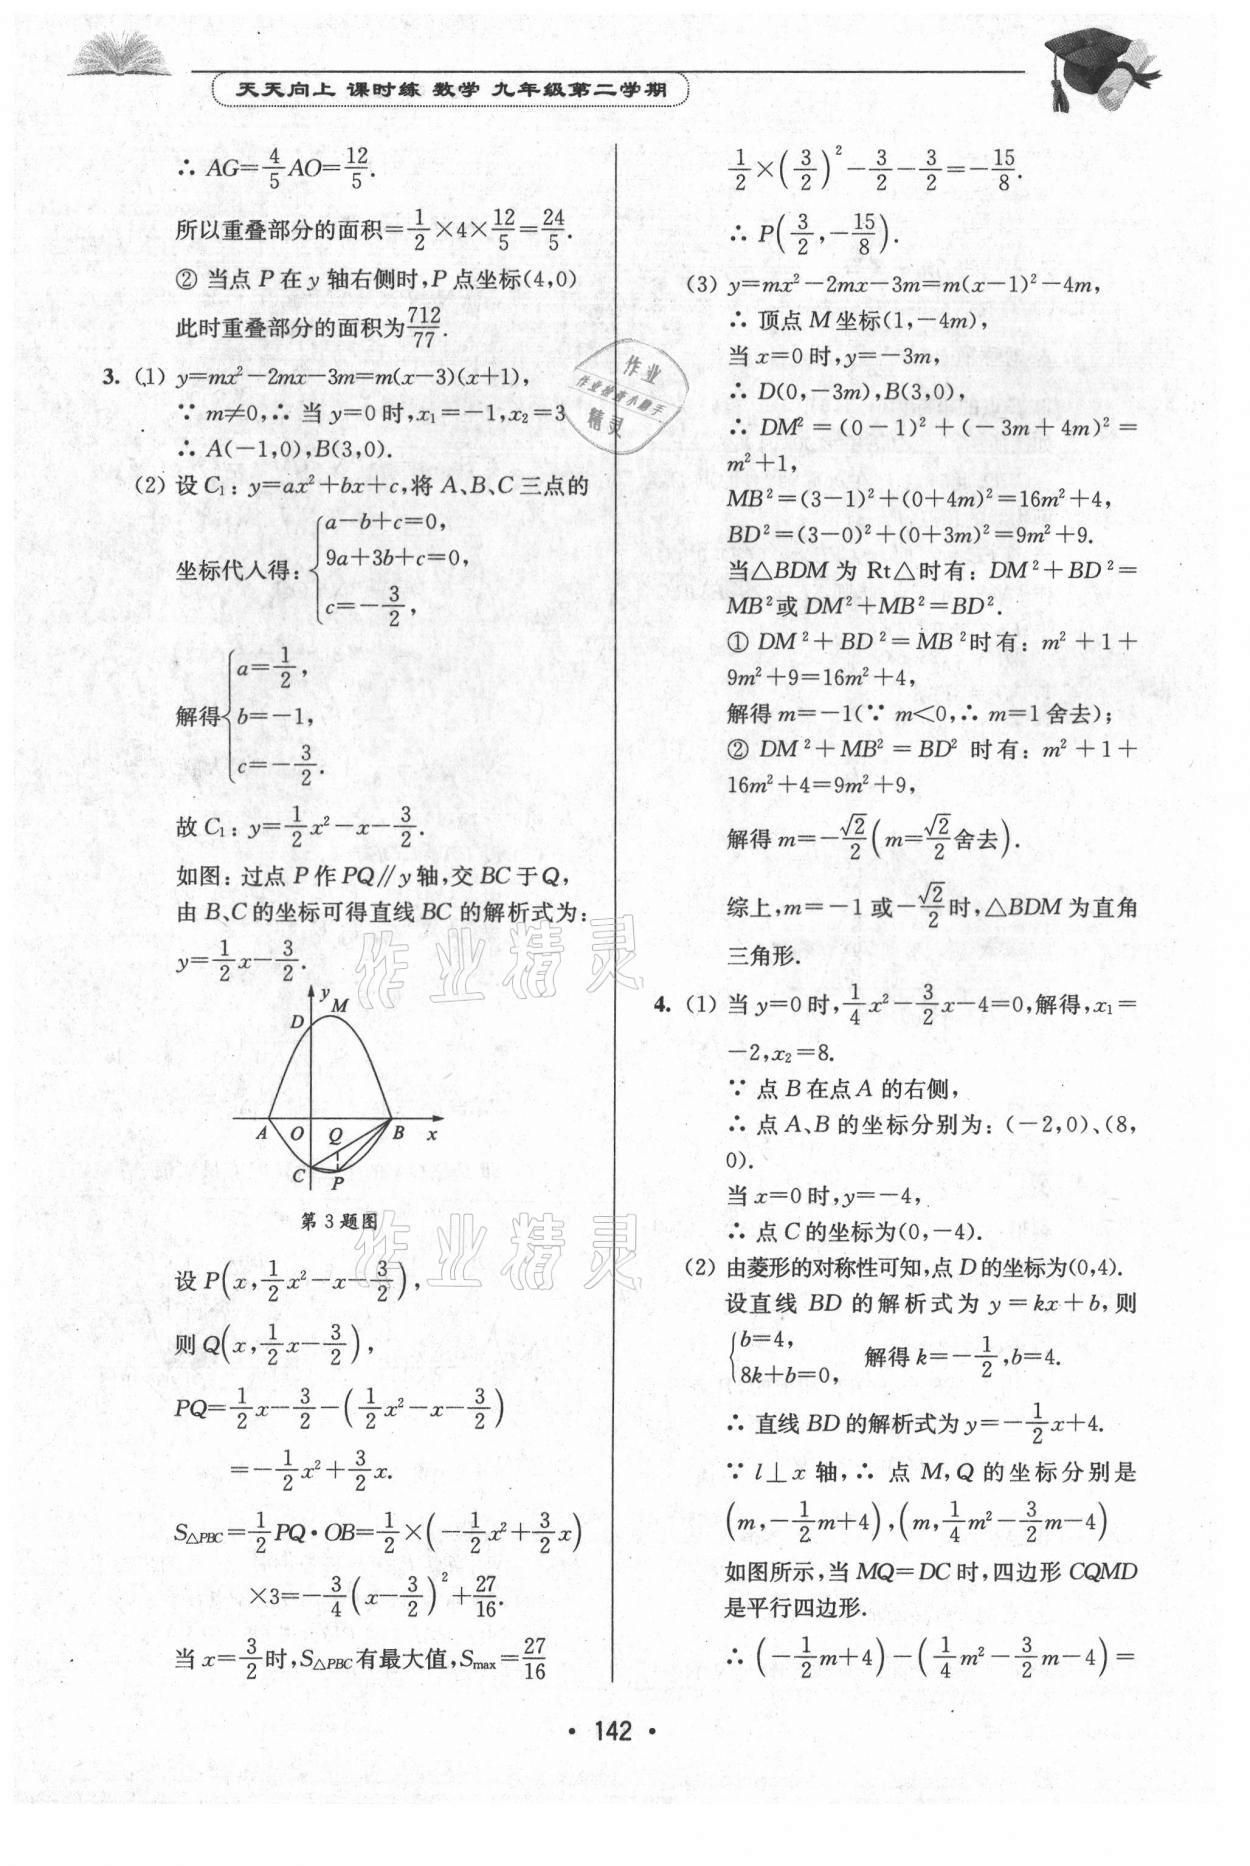 天天向上 课时练 数学 九年级第二学期
∴ AG=4/5 AO=12/5.
所以重叠部分的面积=1/2×4×12/5=24/5.
② 当点 P 在 y 轴右侧时,P 点坐标(4,0)
此时重叠部分的面积为712/77.
3. (1) y=mx²-2mx-3m=m(x-3)(x+1),
∵ m≠0,∴ 当 y=0 时,x₁=-1,x₂=3
∴ A(-1,0),B(3,0).
(2) 设 C₁: y=ax²+bx+c,将 A、B、C 三点的
坐标代入得: { a-b+c=0,
9a+3b+c=0,
c=-3/2,
解得 { a=1/2,
b=-1,
c=-3/2.
故 C₁: y=1/2 x²-x-3/2.
如图: 过点 P 作 PQ∥y 轴,交 BC 于 Q,
由 B、C 的坐标可得直线 BC 的解析式为:
y=1/2 x-3/2.
y
M
D
A O Q B x
C P
第 3 题图
设 P(x,1/2 x²-x-3/2),
则 Q(x,1/2 x-3/2),
PQ=1/2 x-3/2-(1/2 x²-x-3/2)
=-1/2 x²+3/2 x.
S△PBC=1/2 PQ·OB=1/2×(-1/2 x²+3/2 x)
×3=-3/4(x-3/2)²+27/16.
当 x=3/2 时,S△PBC 有最大值,Smax=27/16
1/2×(3/2)²-3/2-3/2=-15/8.
∴ P(3/2,-15/8).
(3) y=mx²-2mx-3m=m(x-1)²-4m,
∴ 顶点 M 坐标(1,-4m),
当 x=0 时,y=-3m,
∴ D(0,-3m),B(3,0),
∴ DM²=(0-1)²+(-3m+4m)²=
m²+1,
MB²=(3-1)²+(0+4m)²=16m²+4,
BD²=(3-0)²+(0+3m)²=9m²+9.
当△BDM 为 Rt△时有: DM²+BD²=
MB²或 DM²+MB²=BD².
① DM²+BD²=MB²时有: m²+1+
9m²+9=16m²+4,
解得 m=-1(∵ m<0,∴ m=1 舍去);
② DM²+MB²=BD² 时有: m²+1+
16m²+4=9m²+9,
解得 m=-√2/2(m=√2/2 舍去).
综上,m=-1 或-√2/2 时,△BDM 为直角
三角形.
4. (1) 当 y=0 时,1/4 x²-3/2 x-4=0,解得,x₁=
-2,x₂=8.
∵ 点 B 在点 A 的右侧,
∴ 点 A、B 的坐标分别为: (-2,0)、(8,
0).
当 x=0 时,y=-4,
∴ 点 C 的坐标为(0,-4).
(2) 由菱形的对称性可知,点 D 的坐标为(0,4).
设直线 BD 的解析式为 y=kx+b,则
{ b=4,
8k+b=0, 解得 k=-1/2,b=4.
∴ 直线 BD 的解析式为 y=-1/2 x+4.
∵ l⊥x 轴,∴ 点 M,Q 的坐标分别是
(m,-1/2 m+4),(m,1/4 m²-3/2 m-4)
如图所示,当 MQ=DC 时,四边形 CQMD
是平行四边形.
∴ (-1/2 m+4)-(1/4 m²-3/2 m-4)=
• 142 •
作业
作业检查小助手
精灵
作业精灵
作业精灵